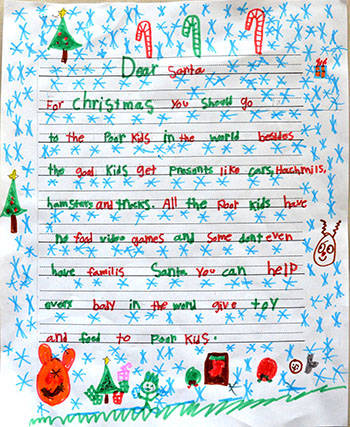 Dear Santa
For christmas you should go
to the Poor kids in the world besides
the good kids get presents like cars, Hachmils,
hamsters and tricks. All the Poor kids have
no food video games and some dont even
have familis Santa you can help
every body in the world give toy
and food to Poor kids.